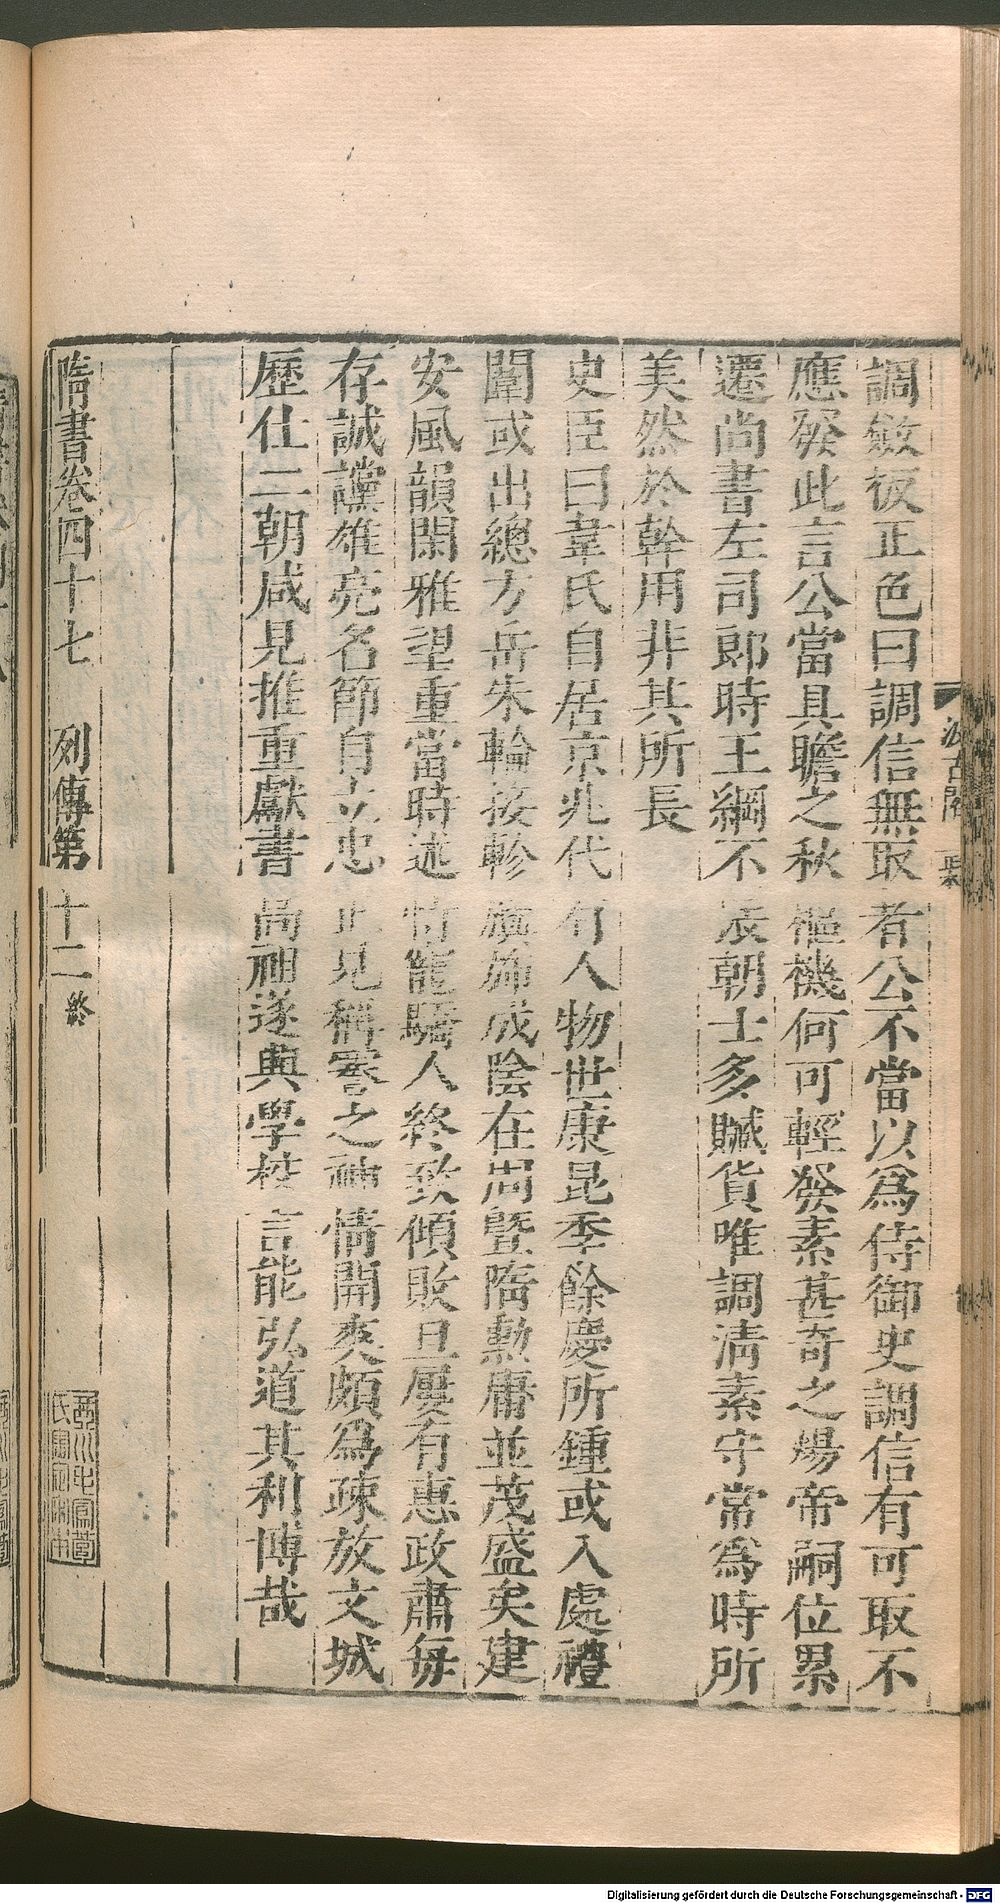 調斂板正色曰調信無取者公不當以為侍御史調信有可取不
應發此言公當具瞻之秋樞機何可輕發素甚奇之煬帝嗣位累
遷尚書左司郎時王綱不振朝士多贓貨唯調清素守常為時所
美然於幹用非其所長
史臣曰韋氏自居京兆代有人物世康昆季餘慶所鍾或入處禮
闈或出總方岳朱輪接軫旟旆成陰在周暨隋勲庸並茂盛矣建
安風韻閑雅望重當時述恃寵驕人終致傾敗旦屢有惠政肅每
存誠讜雄亮名節自立忠正見稱謇之神情開爽頗為疎放文城
歷仕二朝咸見推重獻書尚祖遂典學校言能弘道其利博哉
隋書卷四十七 列傳第十二終
汲古閣
Digitalisierung gefördert durch die Deutsche Forschungsgemeinschaft - DFG